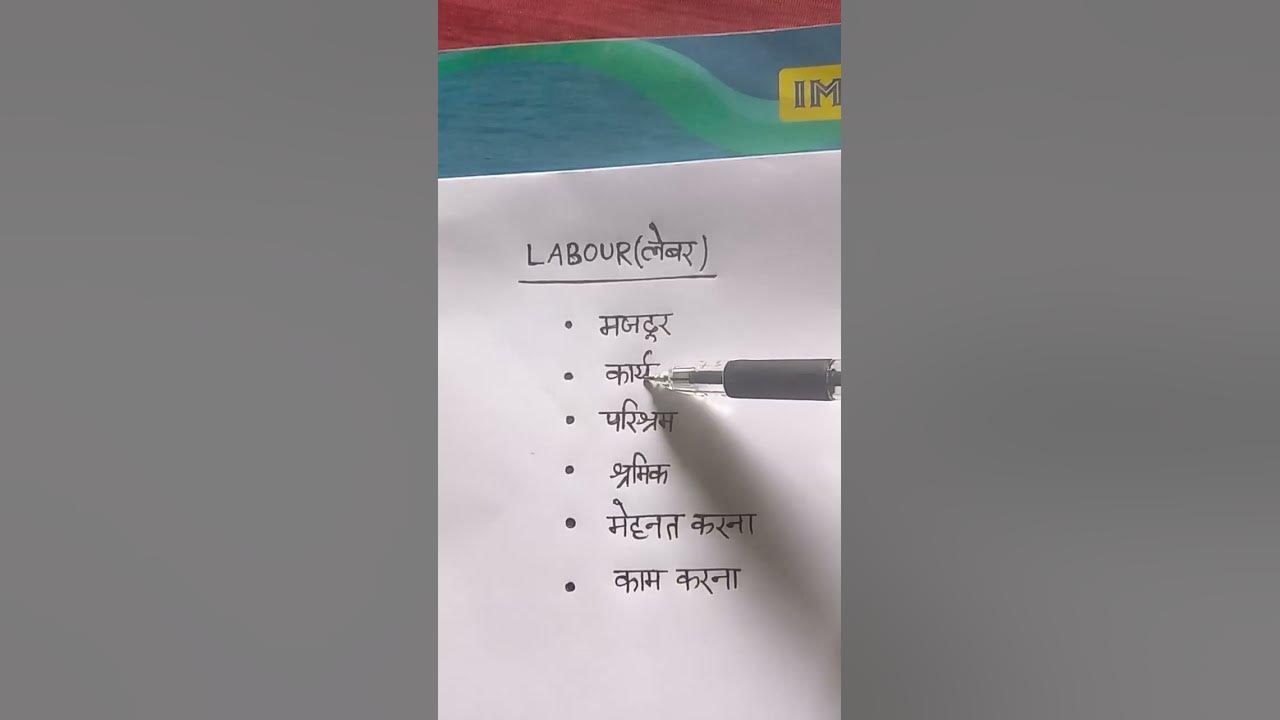 IM
LABOUR(लेबर)
• मजदूर
• कार्य
• परिश्रम
• श्रमिक
• मेहनत करना
• काम करना